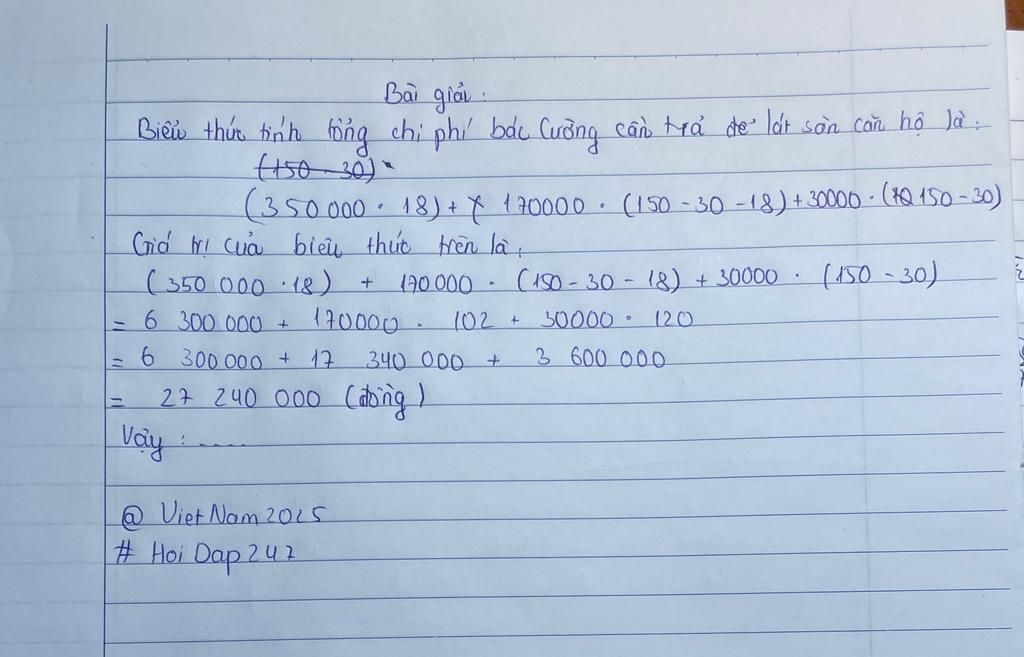 Bài giải :
Biểu thức tính tổng chi phí bác Cường cần trả để lát sàn căn hộ là :
(150 - 30) ·
(350 000 · 18) + 170000 · (150 - 30 - 18) + 30000 · (150 - 30)
Giá trị của biểu thức trên là :
(350 000 · 18) + 170000 · (150 - 30 - 18) + 30000 · (150 - 30)
= 6 300 000 + 170000 · 102 + 30000 · 120
= 6 300 000 + 17 340 000 + 3 600 000
= 27 240 000 (đồng)
Vậy : .....
@ VietNam2025
# HoiDap247